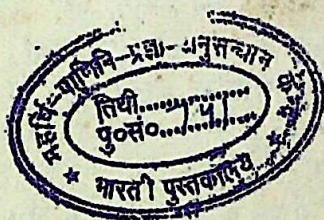 महर्षि-पाणिनि-प्रज्ञा-अनुसन्धान
तिथी..............
पु०सं०....141
भारती पुस्तकालय